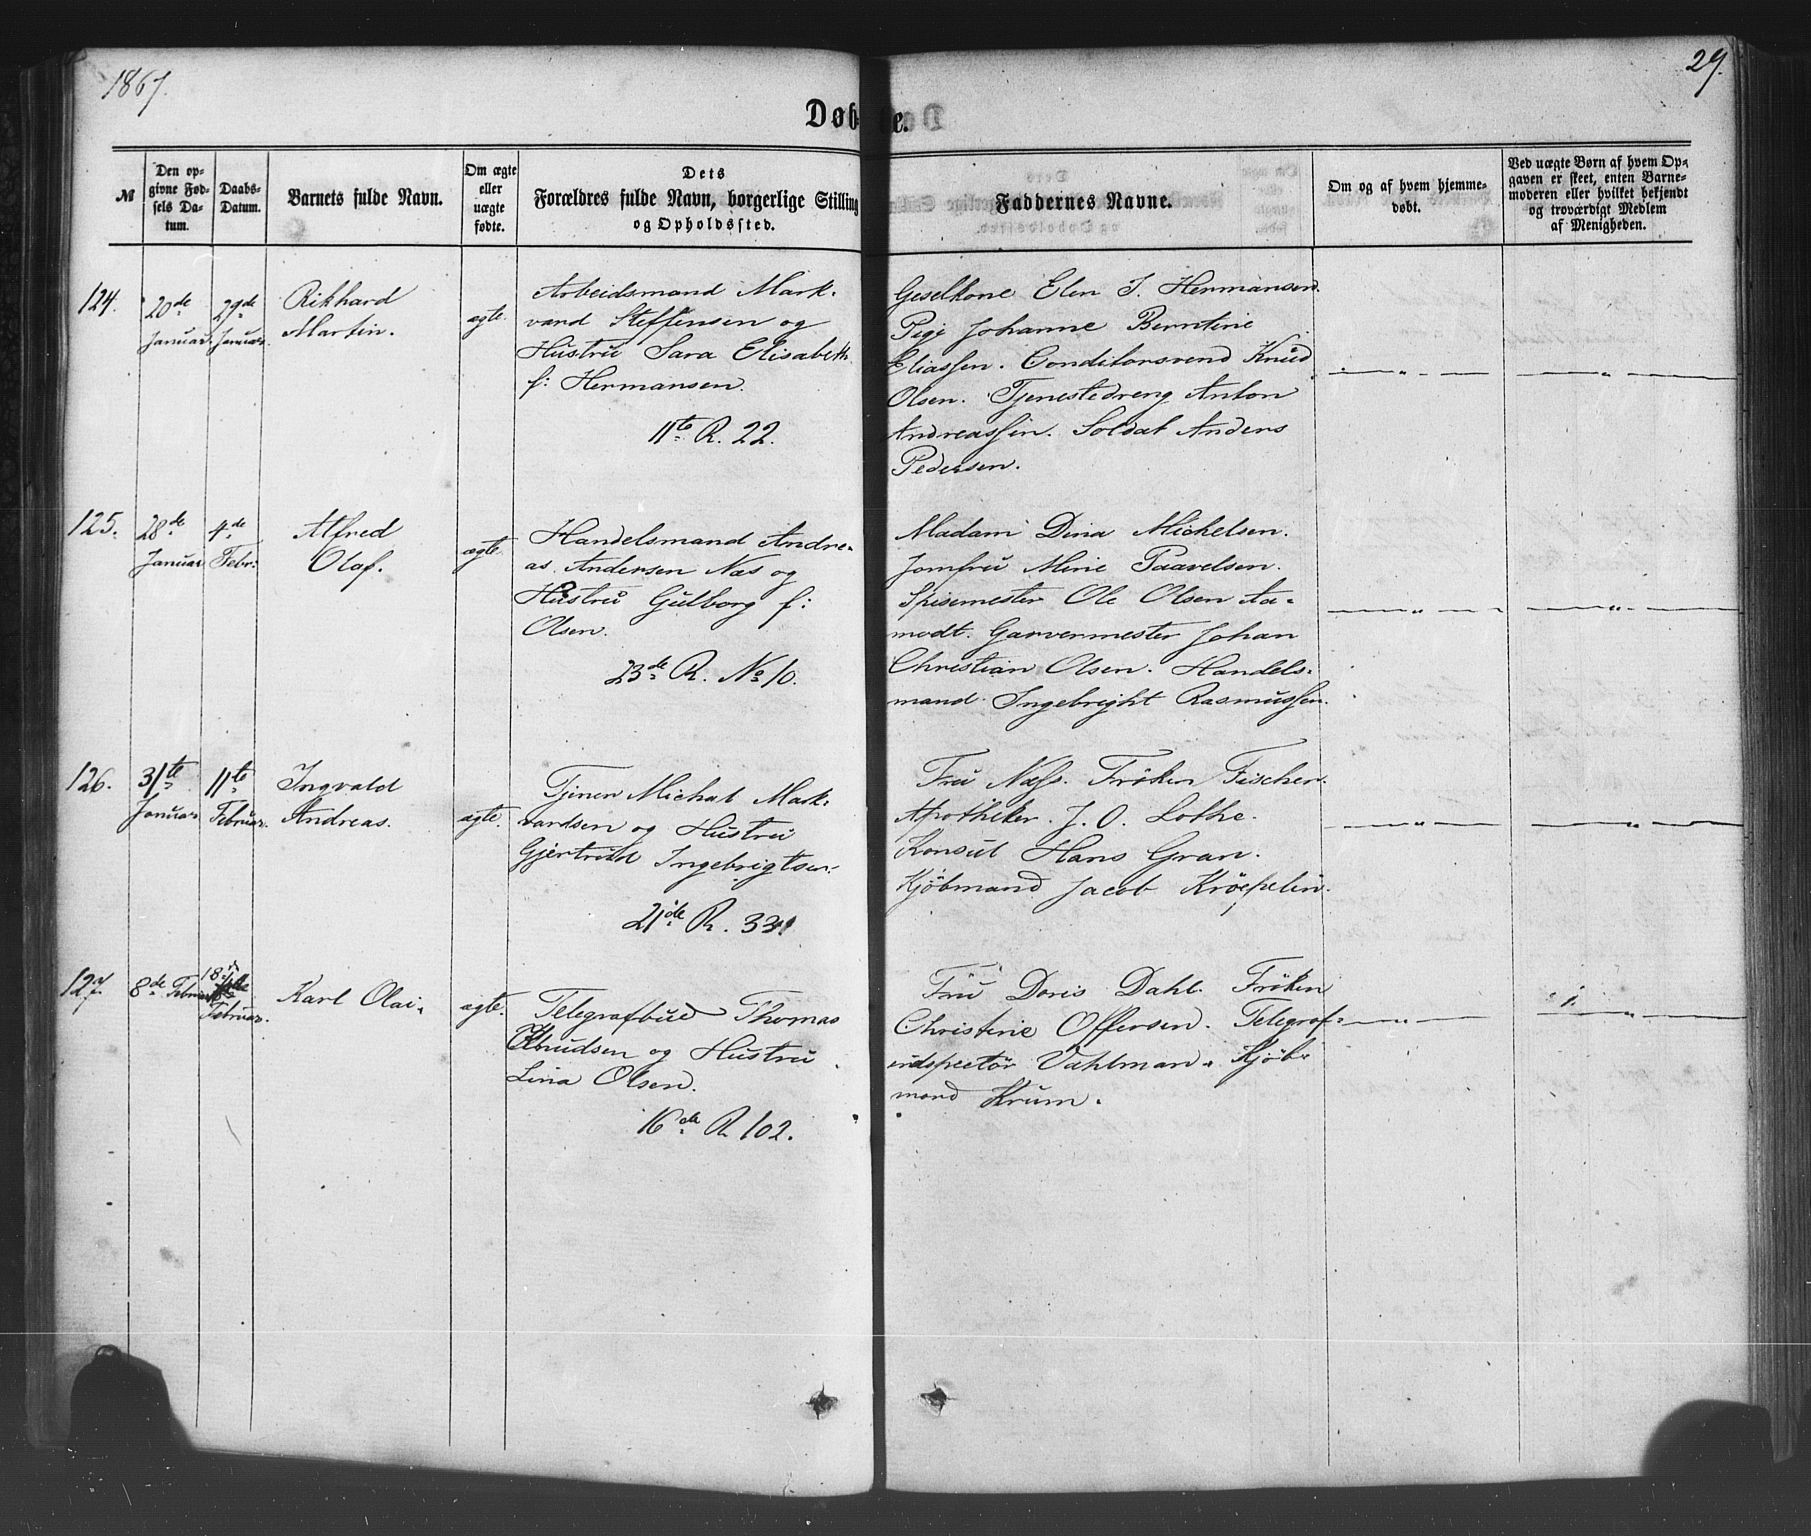 1867.
29.
Døbte.
№
Den opgivne Fødsels Datum.
Daabs-Datum.
Barnets fulde Navn.
Om ægte eller uægte fødte.
Dets
Forældres fulde Navn, borgerlige Stilling
og Opholdssted.
Faddernes Navne.
Om og af hvem hjemmedøbt.
Ved uægte Børn af hvem Opgaven er skeet, enten Barnemoderen eller hvilket bekjendt og troværdigt Medlem af Menigheden.
124.
20de
Januar
29de
Januar.
Rikhard
Martin.
ægte.
Arbeidsmand Mark-
vard Steffensen og
Hustru Sara Elisabeth
f: Hermansen.
11te R. 22.
Geselkone Elen J. Hermansen.
Pige Johanne Berntine
Eliassen. Conditorsvend Knud
Olsen. Tjenestedreng Anton
Andreassen. Soldat Anders
Pedersen.
125.
28de
Januar
4de
Febr:
Alfred
Olaf.
ægte.
Handelsmand Andre-
as Andersen Næs og
Hustru Gulborg f:
Olsen.
23de R. No 10.
Madam Dina Mickelsen.
Jomfru Mine Paavelsen.
Spisemester Ole Olsen Aa-
modt. Garvermester Johan
Christian Olsen. Handels-
mand Ingebright Rasmussen.
126.
31te
Januar
11te
Februar.
Ingvald
Andreas.
ægte.
Tjener Michal Mark-
vardsen og Hustru
Gjertrud Ingebrigtsen.
21de R. 33
Fru Næss. Frøken Fischer.
Apotheker. J. O. Lothe.
Konsul Hans Gran.
Kjøbmand Jacob Krøepelin.
127.
8de Februar
18de
Februar.
Karl Olai.
ægte.
Telegrafbud Thomas
Knudsen og Hustru
Lina Olsen.
16de R 102.
Fru Doris Dahl. Frøken
Christine Offersen. Telegraf-
indspectør Vahlman. Kjøb-
mand Krum.